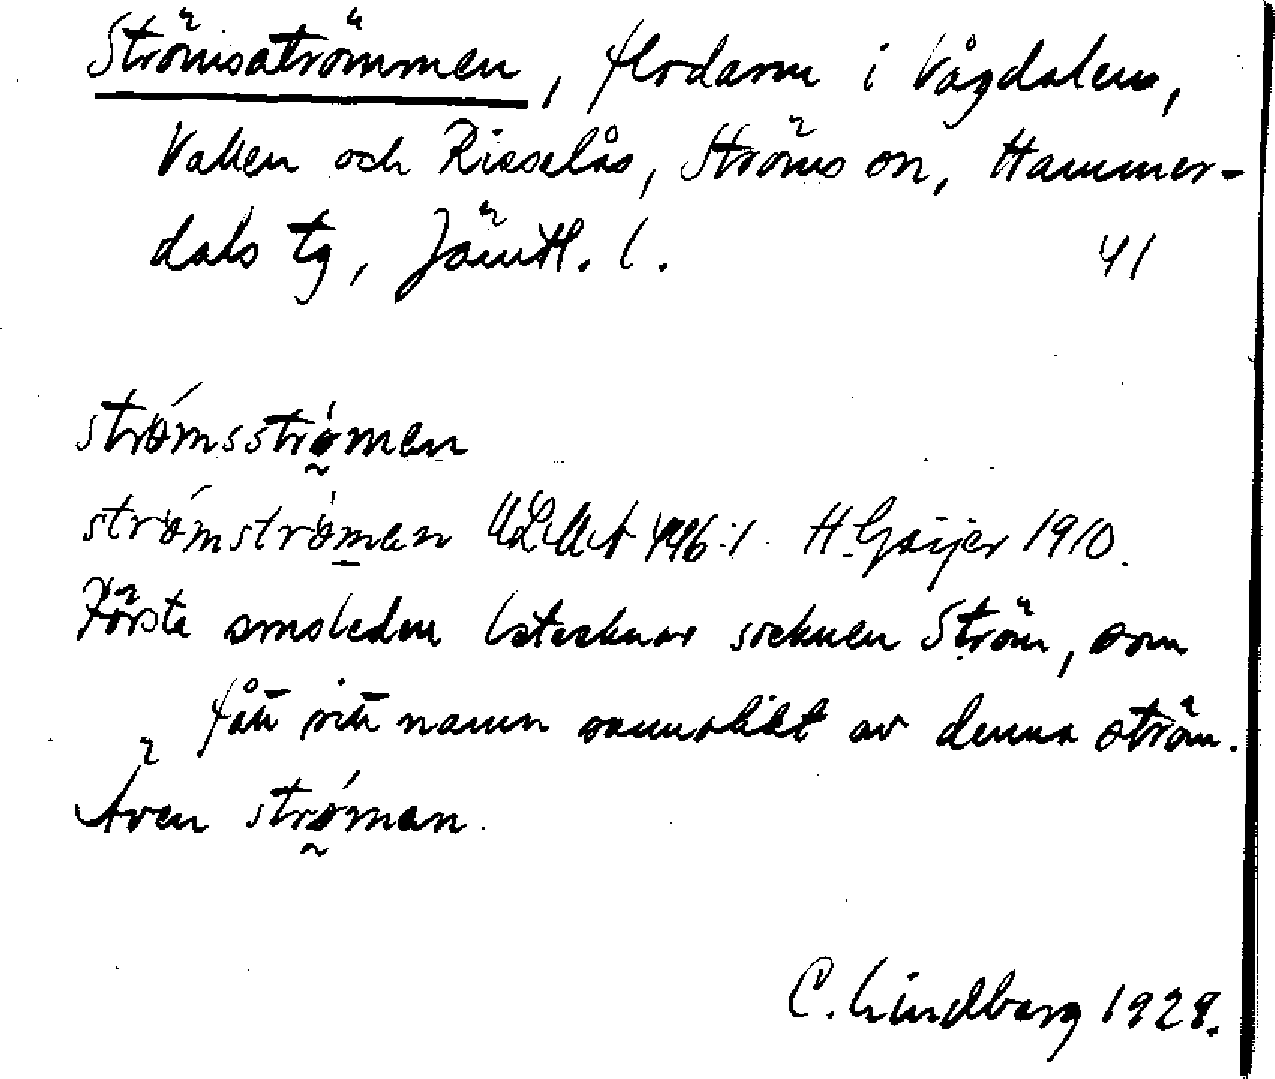 Strömsströmmen, flodarm i Vågdalen,
Vallen och Risselås, Ströms sn, Hammer-
dals tg, Jämtl. l. 41
strǿmsstrømen
strǿmstrømen H. Geijer 1910.
Första smsleden betecknar socknen Ström, som
fått sitt namn sannolikt av denna ström.
Även strǿmen.
C. Lindberg 1928.